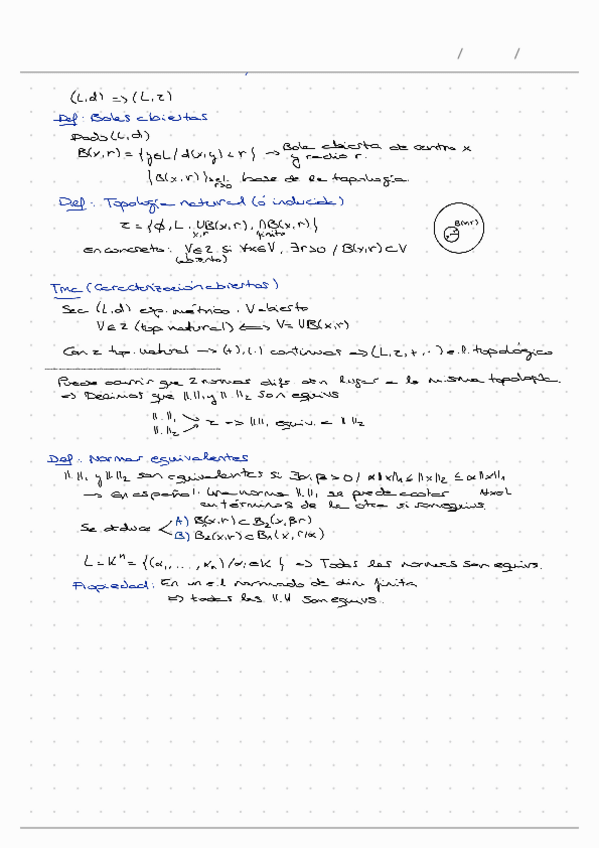 (L,d) => (L,τ)
Def: Bolas abiertas
Dado (L,d)
B(x,r) = {y∈L / d(x,y) < r} → Bola abierta de centro x
y radio r.
{B(x,r)} x∈L r>0 base de la topología.
Def: Topología natural (ó inducida)
τ = {∅, L, ∪B(x,r), ∩B(x,r)}
x,r finito
B(x,r)
En concreto: V∈τ si ∀x∈V, ∃r>0 / B(x,r)⊂V
(abierto)
Tma (Caracterización abiertos)
Sea (L,d) esp. métrico. V abierto
V∈τ (top natural) <=> V = ∪B(x,r)
Con τ top. natural → (+), (·) continuas => (L,τ,+,·) e.l. topológico
Puede ocurrir que 2 normas difs. den lugar a la misma topología.
=> Decimos que ||.||₁ y ||.||₂ son equivs
||.||₁
||.||₂ > τ => ||.||₁ equiv. a ||.||₂
Def: Normas equivalentes
||.||₁ y ||.||₂ son equivalentes si ∃α,β > 0 / α||x||₁ ≤ ||x||₂ ≤ β||x||₁
→ En español: Una norma ||.||₁ se puede acotar ∀x∈L
en términos de la otra si son equivs.
Se deduce < A) B₁(x,r) ⊂ B₂(x,βr)
B) B₂(x,r) ⊂ B₁(x,r/α)
L = Kⁿ = {(α₁,...,αₙ) / αᵢ∈K} => Todas las normas son equivs.
Propiedad: En un e.l normado de dim finita
=> todas las ||.|| son equivs.